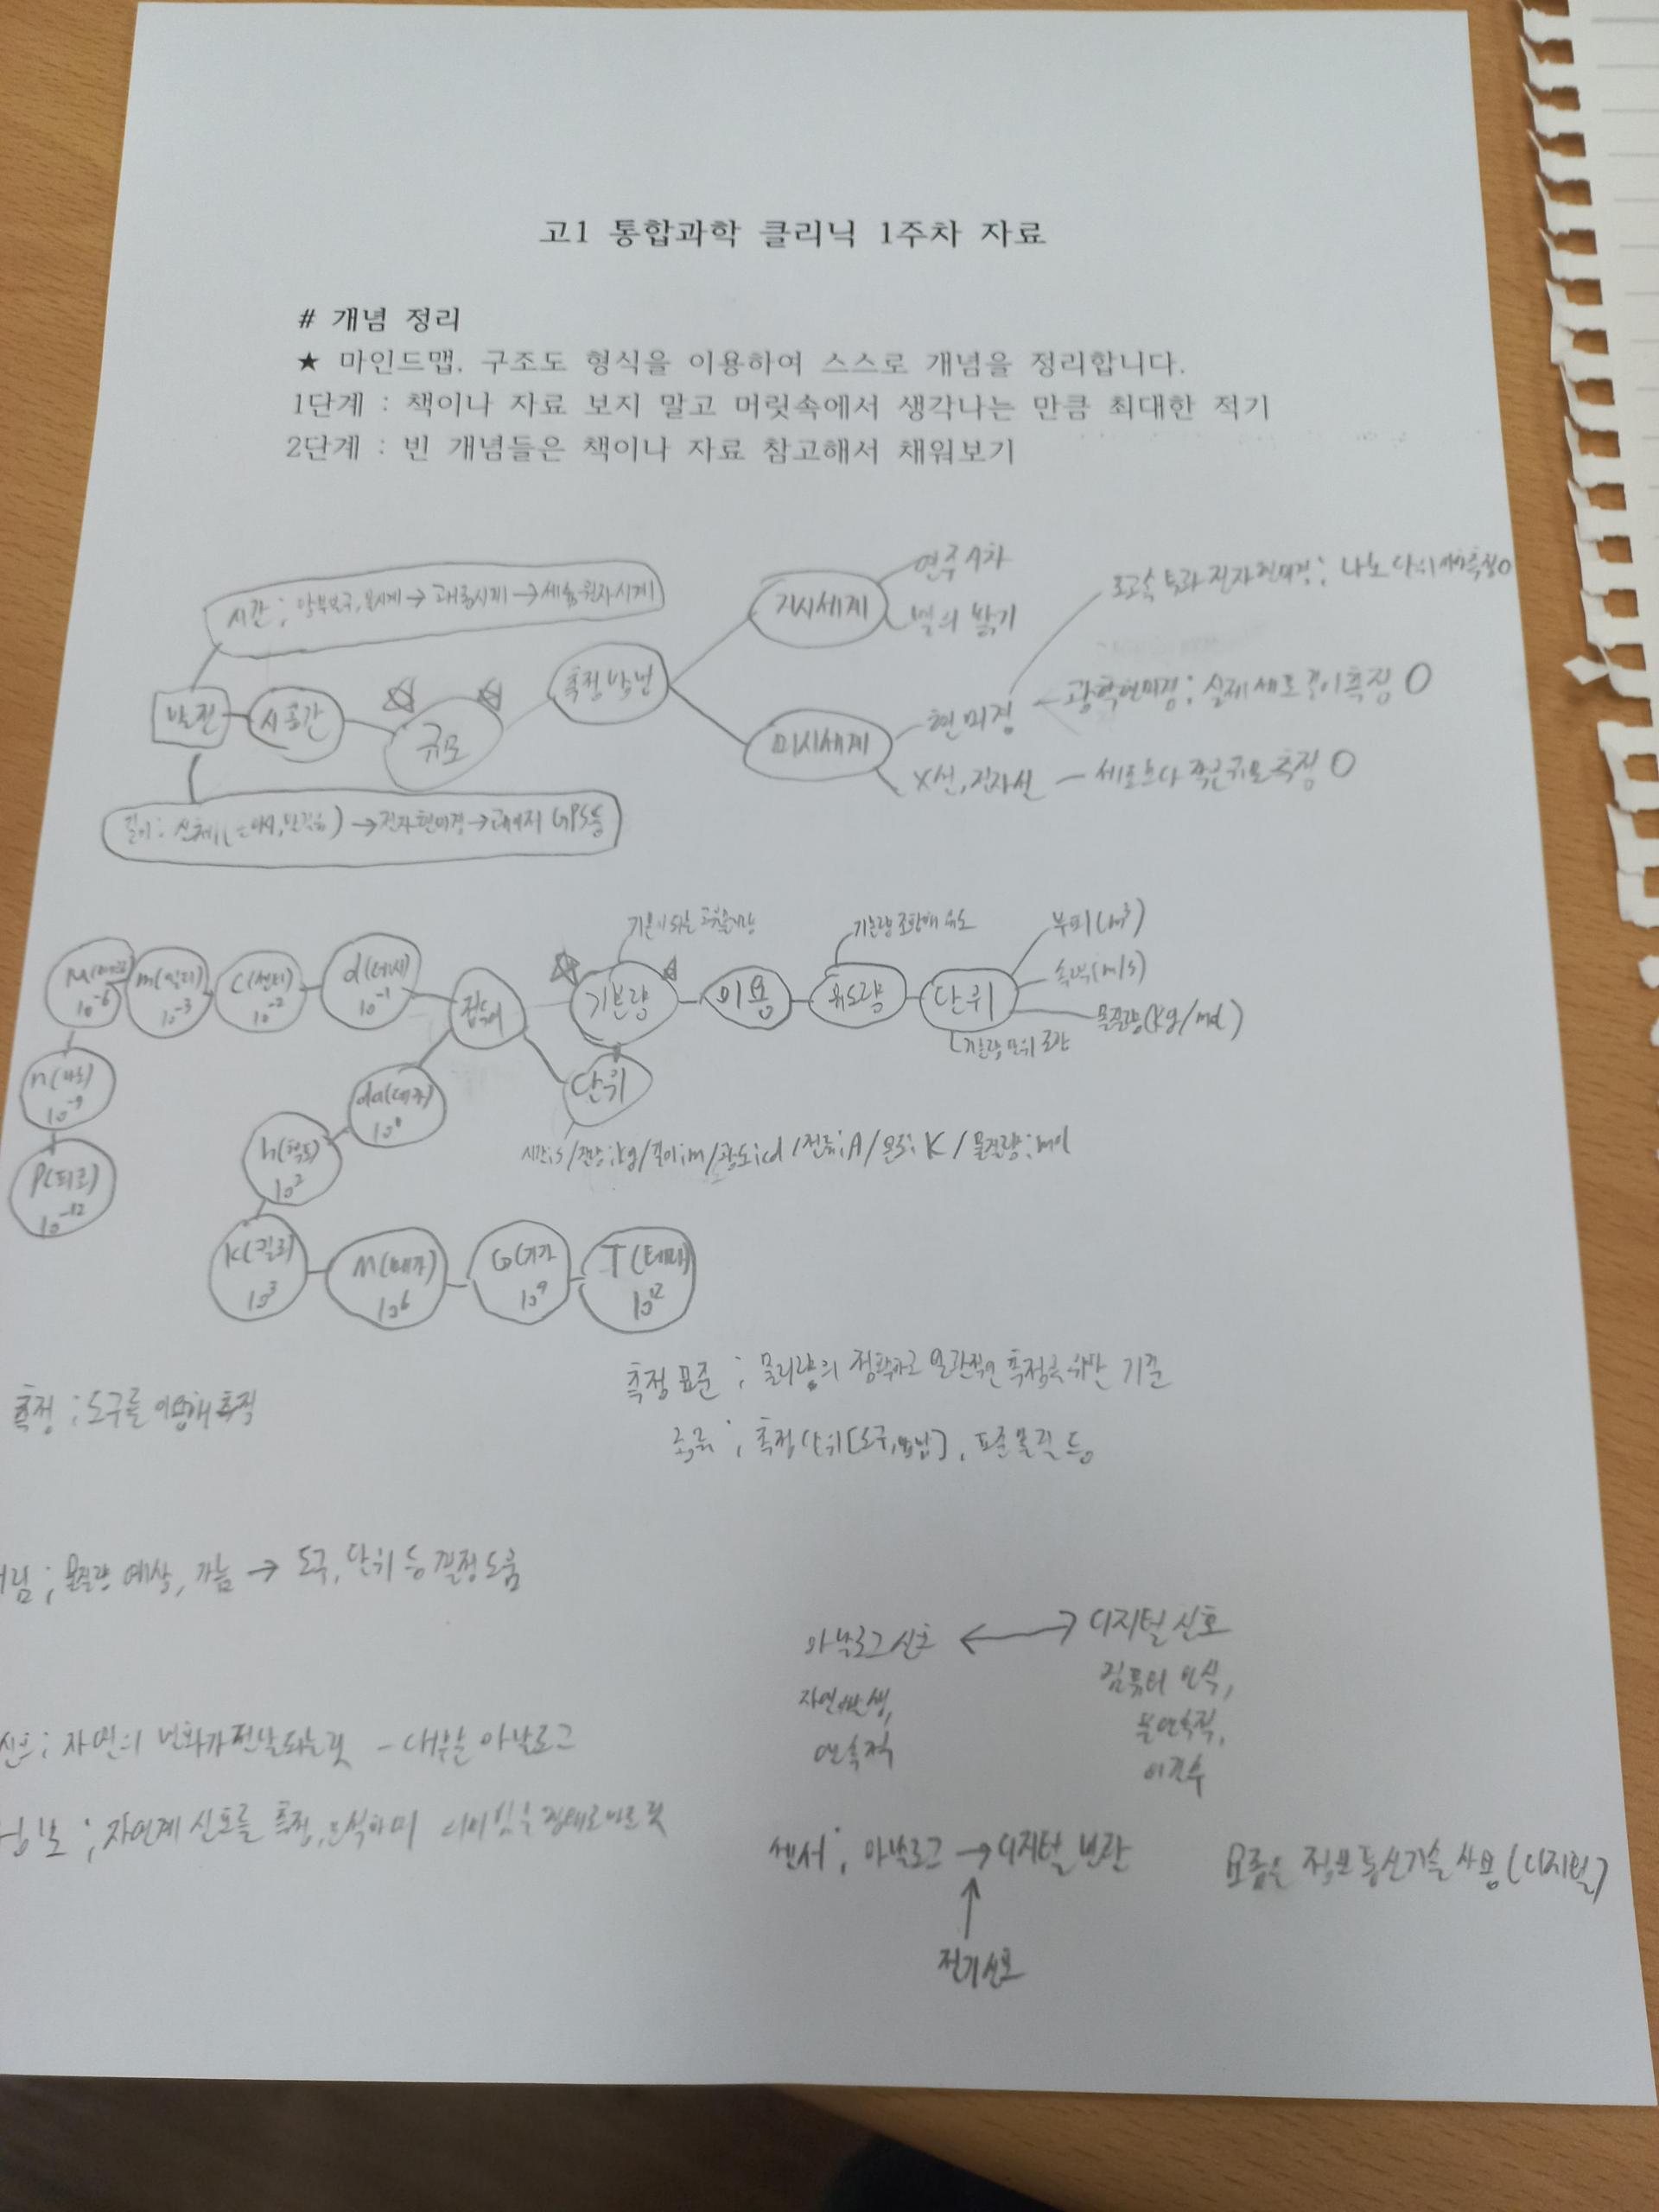 고1 통합과학 클리닉 1주차 자료
# 개념 정리
★ 마인드맵, 구조도 형식을 이용하여 스스로 개념을 정리합니다.
1단계 : 책이나 자료 보지 말고 머릿속에서 생각나는 만큼 최대한 적기
2단계 : 빈 개념들은 책이나 자료 참고해서 채워보기
시간 ; 앙부일구, 물시계 → 괘종시계 → 세슘 원자시계
발전
시공간
규모
측정 방법
거시세계
연주시차
별의 밝기
미시세계
현미경
투과전자현미경; 나노 단위 측정 O
광학현미경; 실제 세포 길이 측정 O
X선, 전자선 - 세포보다 작은 규모 측정 O
길이; 신체 → 전자현미경 → GPS 등
기본이 되는
기본량 조합해 유도
부피(m³)
속력(m/s)
물질량(kg/mol)
기본량 단위 조합
μ(마이크로) 10⁻⁶
m(밀리) 10⁻³
c(센티) 10⁻²
d(데시) 10⁻¹
접두어
기본량
이용
유도량
단위
n(나노) 10⁻⁹
da(데카)
단위
p(피코) 10⁻¹²
h(헥토) 10²
시간;s/질량;kg/길이;m/광도;cd/전류;A/온도;K/물질량;mol
k(킬로) 10³
M(메가) 10⁶
G(기가 10⁹
T(테라) 10¹²
측정 표준 ; 물리량의 정확하고 일관적인 측정을 위한 기준
측정 ; 도구를 이용해 측정
종류 ; 측정 단위[도구, 방법], 표준물질 등
림 ; 물질량 예상, 가늠 → 도구, 단위 등 결정 도움
아날로그 신호 ↔ 디지털 신호
자연 발생,
연속적
컴퓨터 인식,
불연속적,
이진수
신호; 자연의 변화가 전달되는 것 - 대부분 아날로그
정보 ; 자연계 신호를 측정, 분석하며 의미 있는 형태로 만든 것
센서; 아날로그 → 디지털 변환
전기신호
요즘은 정보통신기술 사용(디지털)